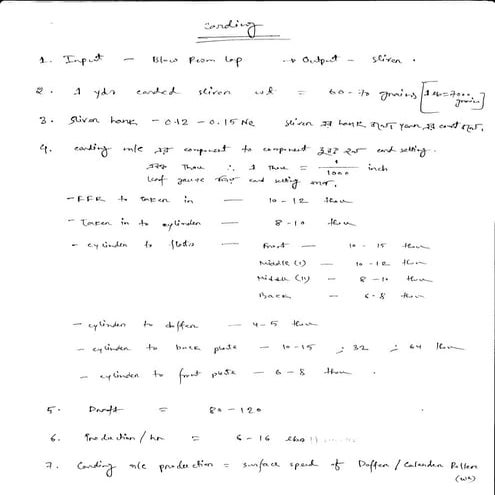 Carding
1. Input — Blow Room Lap → Output - Sliver.
2. 1 yds carded sliver wt = 60-70 grains [1 lb = 7000 grains]
3. Sliver hank - 0.12 - 0.15 Ne sliver hank
4. Carding m/c component to component setting.
Thou ∴ 1 Thou = 1/1000 inch
Leaf gauge setting
- FFR to taken in — 10-12 thou
- Taken in to cylinder — 8-10 thou
- cylinder to flats — Front — 10-15 thou
Middle (I) — 10-12 thou
Middle (II) — 8-10 thou
Back — 6-8 thou
- cylinder to doffer — 4-5 thou
- cylinder to back plate - 10-15 ; 32 ; 64 thou
- cylinder to front plate - 6-8 thou.
5. Draft = 80-120
6. Production/hr = 6-16 lbs
7. Carding m/c production = surface speed of Doffer/Calender Roller